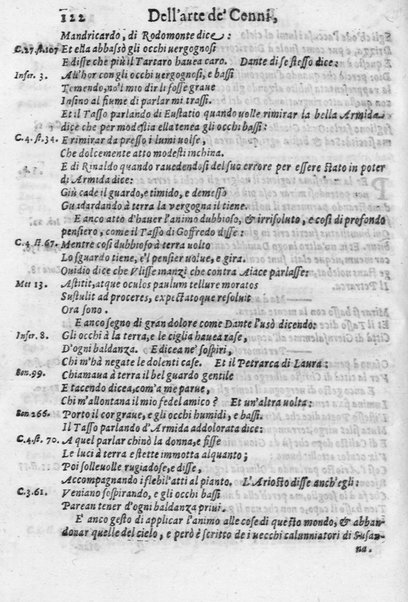 122 Dell'arte de' Cenni,
Mandricardo, di Rodomonte dice:
C.27.st.107 Et ella abbassò gli occhi vergognosi
E disse che più il Tartaro hauea caro. Dante di se stesso dice:
Infer. 3. All'hor con gli occhi vergognosi, e bassi
Temendo, no'l mio dir li fosse graue
Insino al fiume di parlar mi trassi.
Et il Tasso parlando di Eustatio quando uolle rimirar la bella Armida
dice che per modestia ella tenea gli occhi bassi:
C. 4. st. 34. E rimirar da presso i lumi uolse,
Che dolcemente atto modesti inchina.
E di Rinaldo quando rauedendosi del suo errore per essere stato in poter
di Armida dice:
Giù cade il guardo, e timido, e demesso
Guadardando à terra la vergogna il tiene.
E anco atto d'hauer l'animo dubbioso, & irrisoluto, e così di profondo
pensiero, come il Tasso di Goffredo disse:
C.4 st.67. Mentre così dubbioso à terra uolto
Lo sguardo tiene, e'l pensier uolue, e gira.
Ouidio dice che Vlisse manzi che contra Aiace parlasse:
Met 13. Astitit, atque oculos paulum tellure moratos
Sustulit ad proceres, expectatoque resoluit
Ora sono.
E anco segno di gran dolore come Dante l'usò dicendo:
Infer. 8. Gli occhi à la terra, e le ciglia hauea rase,
D'ogni baldanza. E dicea ne' sospiri,
Chi m'hà negate le dolenti case. Et il Petrarca di Laura:
Son. 99. Chiamaua à terra il bel guardo gentile
E tacendo dicea, com'a me parue,
Chi m'allontana il mio fedel amico? Et un'altra uolta:
Son. 266. Porto il cor graue, e gli occhi humidi, e bassi.
Il Tasso parlando d'Armida addolorata dice:
C.4.st. 70. A quel parlar chinò la donna, e fisse
Le luci à terra e stette immotta alquanto;
Poi solleuolle rugiadose, e disse,
Accompagnando i flebil'atti al pianto. L'Ariosto disse anch'egli:
C.3.61. Veniano sospirando, e gli occhi bassi
Parean tener d'ogni baldanza priui.
E anco gesto di applicar l'animo alle cose di questo mondo, & abban-
donar quelle del cielo, e però è scritto de i uecchi calunniatori di Susan-
na.